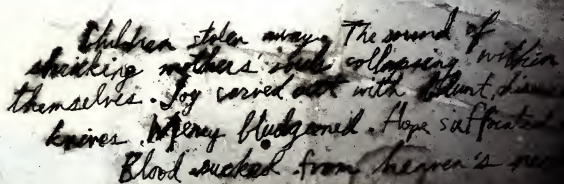 Children stolen away. The sound of
shrieking mothers' souls collapsing within
themselves. Joy carved out with blunt,
knives. Mercy bludgeoned. Hope suffocated
Blood sucked from heaven's